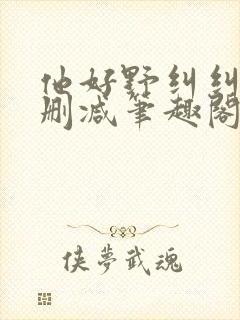 他好野纠纠
删减笔趣阁
侠夢武魂